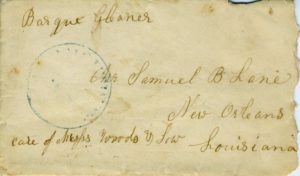 Barque Gleaner
Samuel B Lane
New Orleans
care of Messrs Woods &
Louisiana